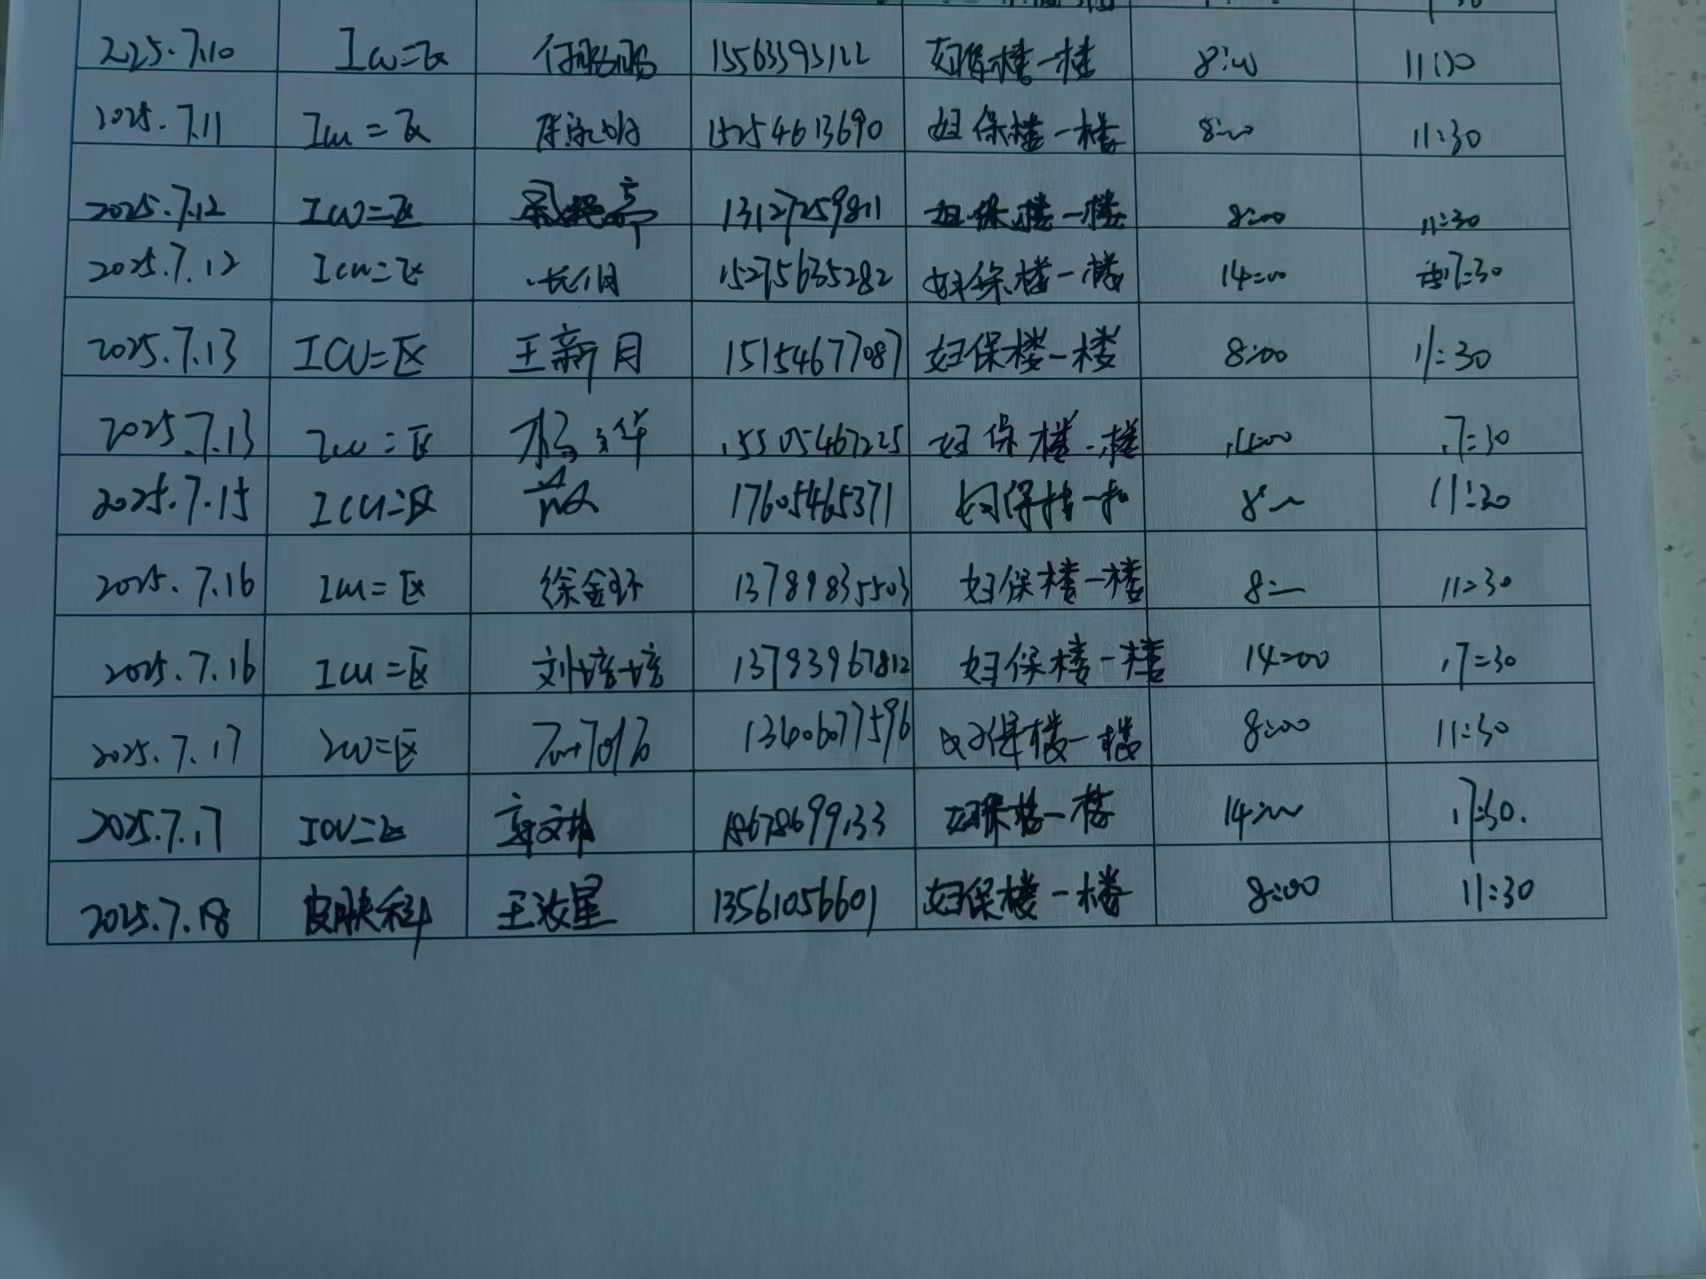 2025.7.10 ICU二区 付 15563395122 妇保楼一楼 8:00 11:30
2025.7.11 ICU二区 15254613690 妇保楼一楼 8:00 11:30
2025.7.12 ICU二区 13127259811 妇保楼一楼 8:00 11:30
2025.7.12 ICU二区 15275635282 妇保楼一楼 14:00 17:30
2025.7.13 ICU二区 王新月 15154677087 妇保楼一楼 8:00 11:30
2025.7.13 ICU二区 杨文华 15505467225 妇保楼一楼 14:00 17:30
2025.7.15 ICU二区 17605465371 妇保楼一楼 8:00 11:30
2025.7.16 ICU二区 徐金环 13789835503 妇保楼一楼 8:00 11:30
2025.7.16 ICU二区 刘培培 13793967812 妇保楼一楼 14:00 17:30
2025.7.17 ICU二区 13406077596 妇保楼一楼 8:00 11:30
2025.7.17 ICU二区 18678699133 妇保楼一楼 14:00 17:30.
2025.7.18 皮肤科 王 13561056601 妇保楼一楼 8:00 11:30